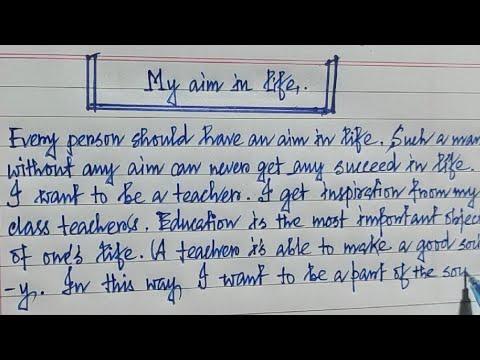 My aim in life.
Every person should have an aim in life. Such a man
without any aim can never get any succeed in life.
I want to be a teacher. I get inspiration from my
class teacher(s. Education is the most important objec
of one's life. (A teacher is able to make a good soci
-y. In this way, I want to be a part of the soci